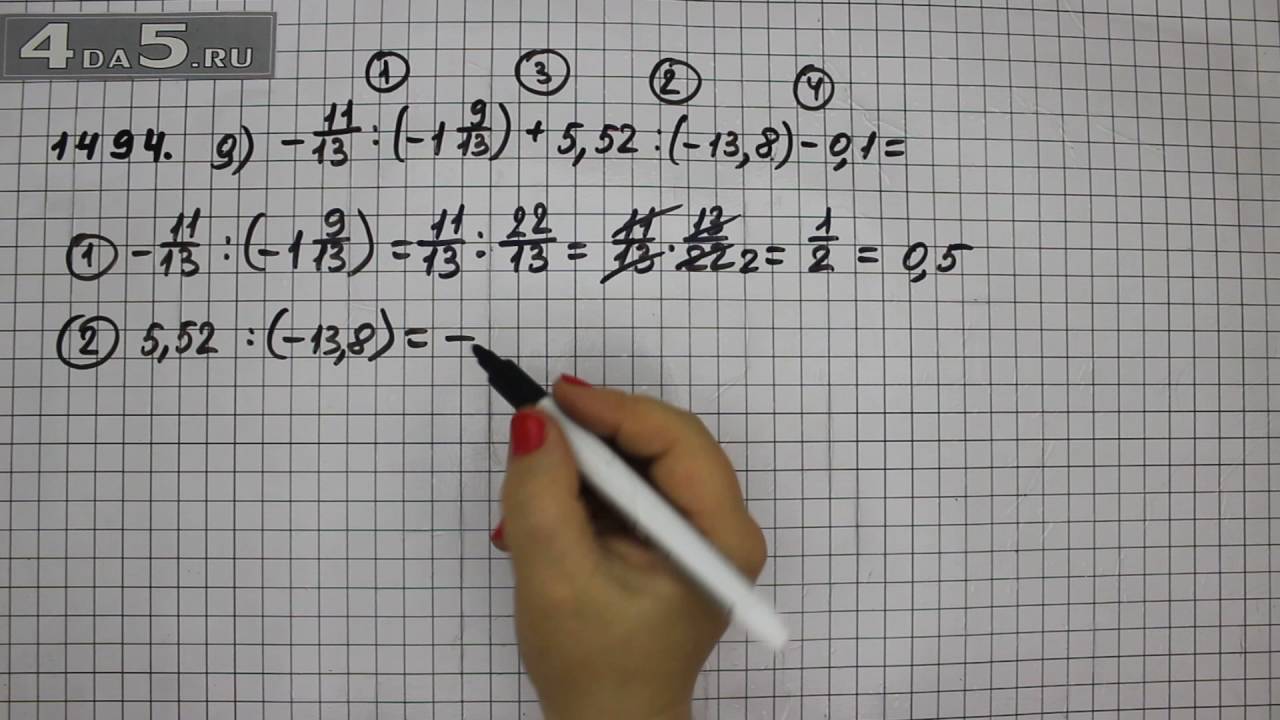 4DA5.RU
① ③ ② ④
1494. д) - 11/13 : (-1 9/13) + 5,52 : (-13,8) - 0,1 =
① - 11/13 : (-1 9/13) = 11/13 : 22/13 = 11/13 · 13/22 2 = 1/2 = 0,5
② 5,52 : (-13,8) = -